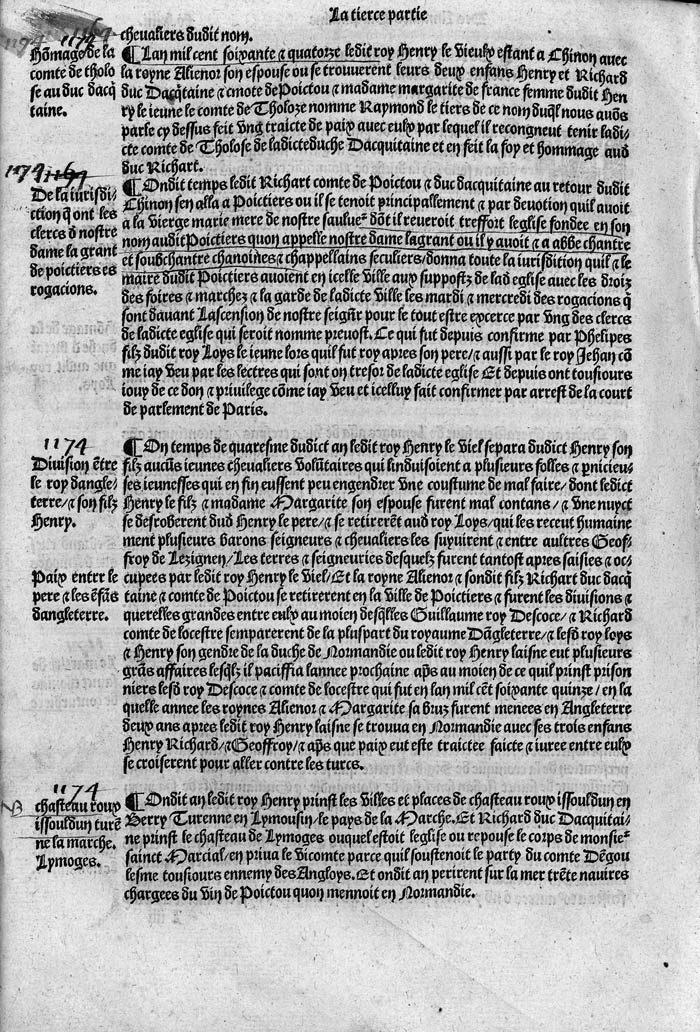 La tierce partie
cheualiers dudit nom.
1174
Hõmage de la
comte de tholo
se au duc dacq̃
taine.
¶ Lan mil cent soixante ⁊ quatorze ledit roy Henry le Vieulx estant a Chinon auec
la royne Alienor son espouse ou se trouuerent leurs deux enfans Henry et Richard
duc Dacq̃taine ⁊ cmote de Poictou ⁊ madame margarite de france femme dudit Hen
ry le ieune le comte de Tholoze nomme Raymond le tiers de ce nom duq̃l nous auõs
parle cy dessus feit vng traicte de paix auec eulx par lequel il recongneut tenir ladi-
cte comte de Tholose de ladicteduche Dacquitaine et en feit la foy et hommage aud
duc Richart.
1174
De la iurisdi-
ction q̃ ont les
clercs d nostre
dame la grant
de poictiers es
rogacions.
¶ Ondit temps ledit Richart comte de Poictou ⁊ duc dacquitaine au retour dudit
Chinon sen alla a Poictiers ou il se tenoit principallement ⁊ par deuotion quil auoit
a la vierge marie mere de nostre saulue² dõt il reueroit treffort leglise fondee en son
nom audit Poictiers quon appelle nostre dame lagrant ou il y auoit ⁊ a abbe chantre
et soubchantre chanoines ⁊ chappellains seculiers/donna toute la iurisdition quil ⁊ le
maire dudit Poictiers auoient en icelle ville aux suppostz de lad eglise auec les droiz
des foires ⁊ marchez ⁊ la garde de ladicte ville les mardi ⁊ mercredi des rogacions q̃
sont dauant Lascension de nostre seigñr pour le tout estre excerce par vng des clercs
de ladicte eglise qui seroit nomme preuost. Ce qui fut depuis confirme par Phelipes
filz dudit roy Loys le ieune lors quil fut roy apres son pere/⁊ aussi par le roy Jehan cõ
me iay veu par les lectres qui sont on tresor de ladicte eglise Et depuis ont tousiours
iouy de ce don ⁊ priuilege cõme iay veu et icelluy fait confirmer par arrest de la court
de parlement de Paris.
1174
Diuision ẽtre
le roy dangle-
terre/⁊ son filz
Henry.
¶ On temps de quaresme dudict an ledit roy Henry le viel separa dudict Henry son
filz aucũs ieunes cheualiers volũtaires qui linduisoient a plusieurs folles ⁊ pnicieu-
ses ieunesses qui en fin eussent peu engendrer vne coustume de mal faire/dont ledict
Henry le filz ⁊ madame Margarite son espouse furent mal contans/⁊ vne nuyct
se desroberent dud Henry le pere/⁊ se retirerẽt aud roy Loys/qui les receut humaine
ment plusieurs barons seigneurs ⁊ cheualiers les suyuirent ⁊ entre aultres Geof-
froy de Lezignen/Les terres ⁊ seigneuries desquelz furent tantost apres saisies ⁊ oc-
Paix entre le
pere ⁊ les ẽfãs
dangleterre.
cupees par ledit roy Henry le viel/Et la royne Alienor ⁊ sondit filz Richart duc dacq̃
taine ⁊ comte de Poictou se retirerent en la ville de Poictiers ⁊ furent les diuisions ⁊
querelles grandes entre eulx au moien desq̃lles Guillaume roy Descoce/⁊ Richard
comte de locestre semparerent de la pluspart du royaume Dãgleterre/⁊ lesd roy loys
⁊ Henry son gendre de la duche de Normandie ou ledit roy Henry laisne eut plusieurs
grãs affaires lesq̃lz il paciffia lannee prochaine ap̃s au moien de ce quil prinst prison
niers lesd roy Descoce ⁊ comte de locestre qui fut en lan mil cẽt soixante quinze/en la
quelle annee les roynes Alienor ⁊ Margarite sa bruz furent menees en Angleterre
deux ans apres ledit roy Henry laisne se trouua en Normandie auec ses trois enfans
Henry Richard/⁊Geoffroy/⁊ ap̃s que paix eut este traictee faicte ⁊ iuree entre eulx
se croiserent pour aller contre les turcs.
1174
NB
chasteau roux
issouldun turẽ
ne la marche.
Lymoges.
¶ Ondit an ledit roy Henry prinst les villes et places de chasteau roux issouldun en
Berry Turenne en Lymousin/le pays de la Marche. Et Richard duc Dacquitai-
ne prinst le chasteau de Lymoges ouquel estoit leglise ou repose le corps de monsie²
sainct Marcial/en priua le vicomte parce quil soustenoit le party du comte Dẽgou
lesme tousiours ennemy des Angloys. Et ondit an perirent sur la mer trẽte nauires
chargees du vin de Poictou quon mennoit en Normandie.